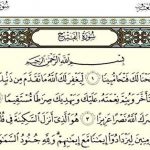 سُورَةُ الفَتْحِ
بِسْمِ اللَّهِ الرَّحْمَٰنِ الرَّحِيمِ
لَكَ فَتْحًا مُّبِينًا ١ لِّيَغْفِرَ لَكَ اللَّهُ مَا تَقَدَّمَ مِن
تَأَخَّرَ وَيُتِمَّ نِعْمَتَهُ عَلَيْكَ وَيَهْدِيَكَ صِرَاطًا مُّسْتَقِيمًا
اللَّهُ نَصْرًا عَزِيزًا ٣ هُوَ الَّذِي أَنزَلَ السَّكِينَةَ فِي
لِيَزْدَادُوا إِيمَانًا مَّعَ إِيمَانِهِمْ وَلِلَّهِ جُنُودُ